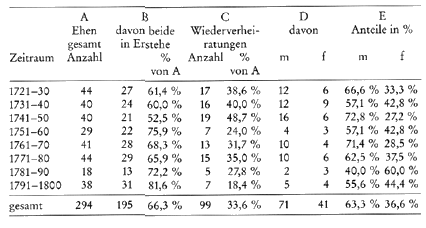 A B C D E
Ehen davon beide Wiederverhei- davon Anteile in %
gesamt in Erstehe ratungen
Zeitraum Anzahl % Anzahl % m f m f
von A von A
1721–30 44 27 61,4 % 17 38,6 % 12 6 66,6 % 33,3 %
1731–40 40 24 60,0 % 16 40,0 % 12 9 57,1 % 42,8 %
1741–50 40 21 52,5 % 19 48,7 % 16 6 72,8 % 27,2 %
1751–60 29 22 75,9 % 7 24,0 % 4 3 57,1 % 42,8 %
1761–70 41 28 68,3 % 13 31,7 % 10 4 71,4 % 28,5 %
1771–80 44 29 65,9 % 15 35,0 % 10 6 62,5 % 37,5 %
1781–90 18 13 72,2 % 5 27,8 % 2 3 40,0 % 60,0 %
1791–1800 38 31 81,6 % 7 18,4 % 5 4 55,6 % 44,4 %
gesamt 294 195 66,3 % 99 33,6 % 71 41 63,3 % 36,6 %